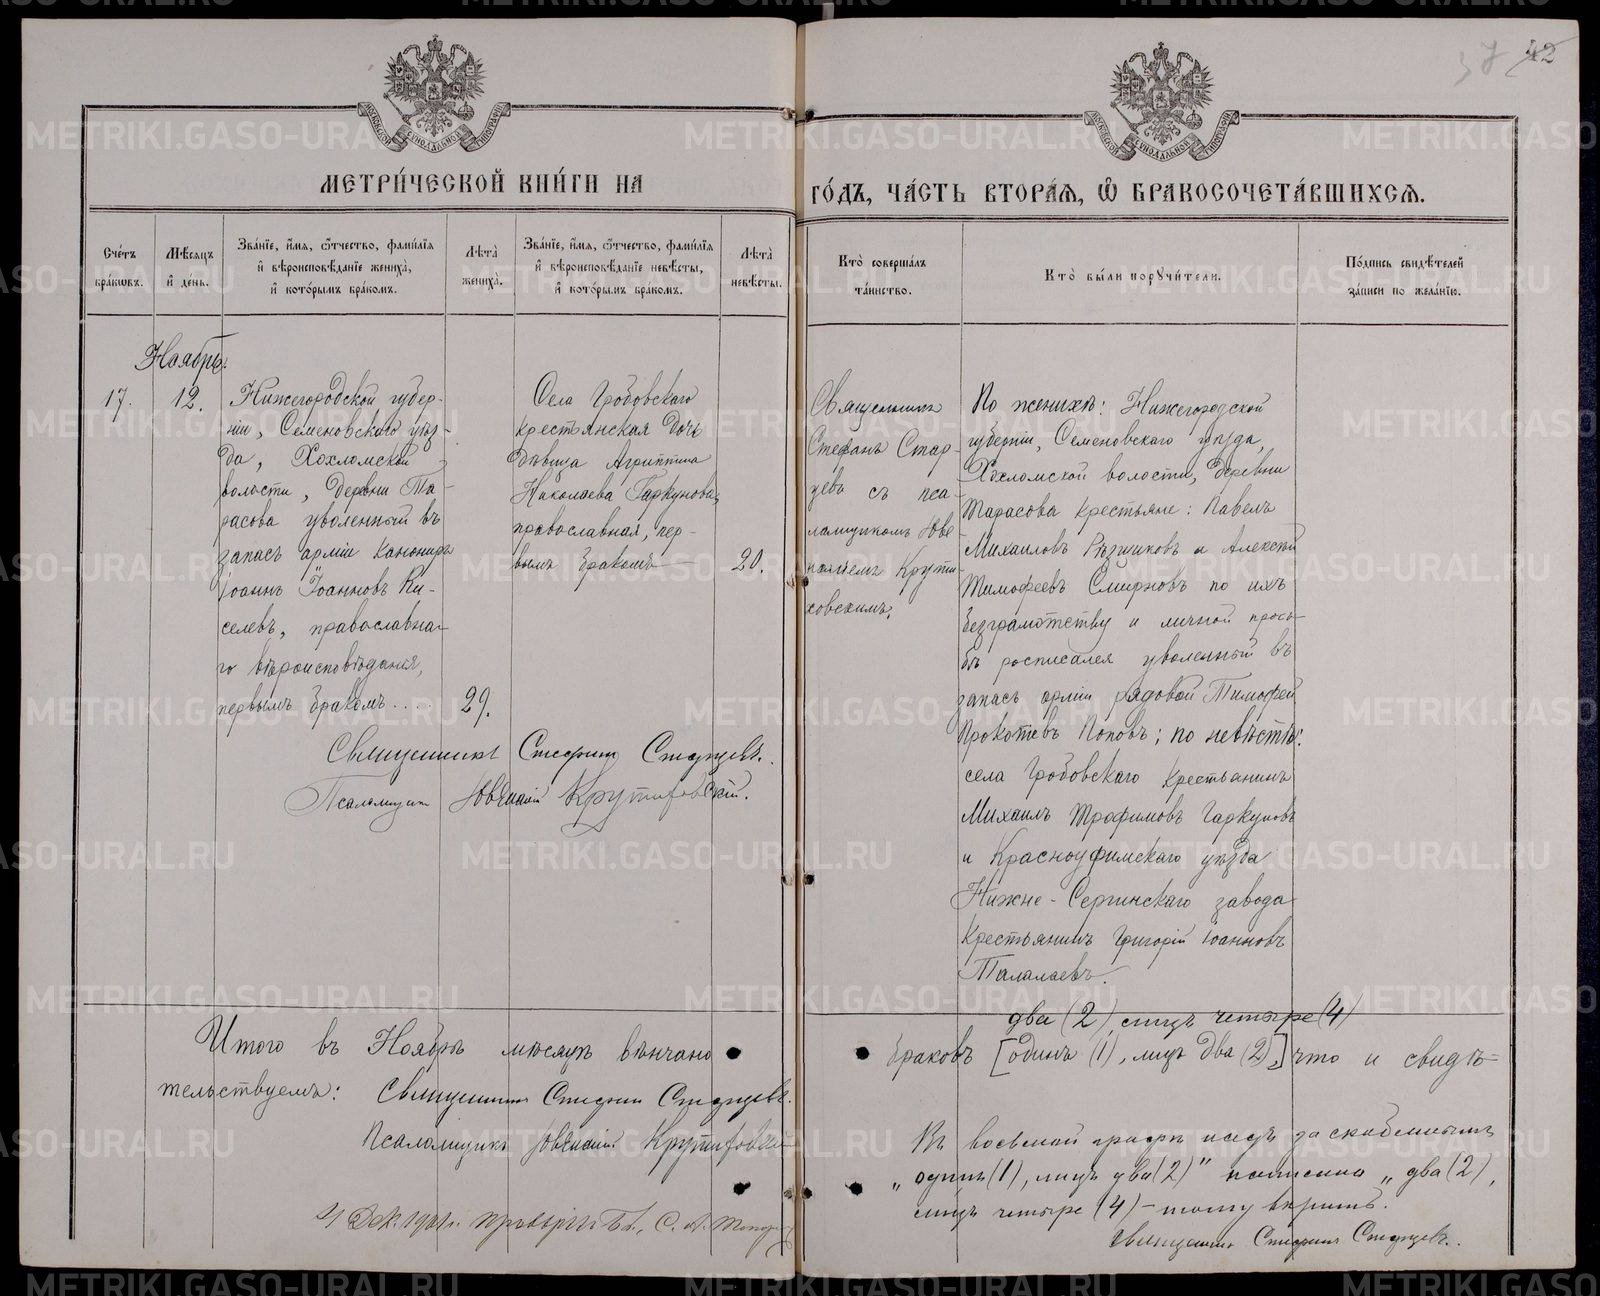 37 42
МЕТРИ́ЧЕСКОЙ КНИ́ГИ НА
ГО́ДЪ, ЧА́СТЬ ВТОРА́Ѧ, Ѡ҆ БРАКОСОЧЕТА́ВШИХСѦ.
Сче́тъ
бра́кѡвъ.
Мѣ́сѧцъ
и҆ де́нь.
Зва́нїе, и҆́мѧ, ѻ҆́тчество, фами́лїѧ
и҆ вѣроисповѣ́данїе жениха̀,
и҆ кото́рымъ бра́комъ.
Лѣ́та
жениха̀.
Зва́нїе, и҆́мѧ, ѻ҆́тчество, фами́лїѧ
и҆ вѣроисповѣ́данїе невѣ́сты,
и҆ кото́рымъ бра́комъ.
Лѣ́та
невѣ́сты.
Кто̀ соверша́лъ
та́инство.
Кто̀ бы́ли порꙋчи́тели.
По́дпись свидѣ́телей
за́писи по жела́нїю.
Ноябрь.
17.
12.
Нижегородской губер-
нiи, Семеновскаго уѣз-
да, Хохломской
волости, деревни Та-
расова уволенный въ
запасъ армiи канониръ
Iоаннъ Iоанновъ Ки-
селевъ, православна-
го вѣроисповѣданiя,
первымъ бракомъ....
29.
Села Гробовскаго
крестьянская дочь
дѣвица Агриппина
Николаева Гаркунова,
православная, пер-
вымъ бракомъ
20.
Священникъ
Стефанъ Стар-
цевъ съ пса-
ломщикомъ Юве
налiемъ Крути-
ховскимъ.
По женихѣ: Нижегородской
губернiи, Семеновскаго уѣзда,
Хохломской волости, деревни
Тарасова крестьяне: Павелъ
Михаиловъ Рѣзчиковъ и Алексѣй
Тимофеевъ Смирновъ по ихъ
безграмотству и личной прось-
бѣ росписался уволенный въ
запасъ армiи рядовой Тимофей
Прокопьевъ Поповъ; по невѣстѣ:
села Гробовскаго крестьянинъ
Михаилъ Трофимовъ Гаркуновъ
и Красноуфимскаго уѣзда
Нижне-Сергинскаго завода
крестьянинъ Григорiй Iоанновъ
Талалаевъ.
Священникъ Стефанъ Старцевъ.
Псаломщикъ Ювеналiй Крутиховскiй.
два (2), лицъ четыре (4)
Итого въ Ноябрѣ мѣсяцѣ вѣнчано
браковъ [одинъ (1), лицъ два (2),] что и свидѣ-
тельствуемъ: Священникъ Стефанъ Старцевъ.
Псаломщикъ Ювеналiй Крутиховскiй
Въ восьмой графѣ надъ заскобленнымъ
„одинъ (1), лицъ два (2)" написано „два (2),
лицъ четыре (4) – тому вѣрить.
Священникъ Стефанъ Старцевъ.
4 Дек. 1901 г.
METRIKI.GASO-URAL.RU